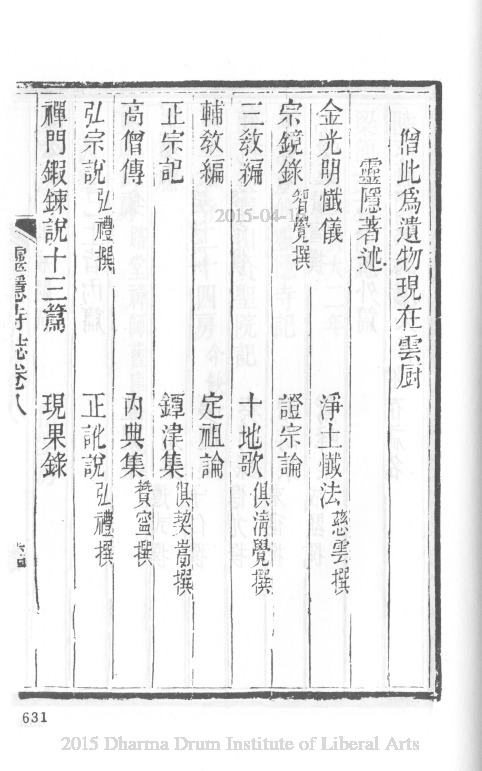 僧此爲遺物現在雲厨
靈隱著述
金光明懺儀 淨土懺法慈雲撰
宗鏡錄智覺撰 證宗論
三教編 十地歌俱淸覺撰
輔教編 定祖論
正宗記 鐔津集俱契嵩撰
高僧傳 內典集贊寧撰
弘宗說弘禮撰 正訛說弘禮撰
禪門鍜鍊說十三篇 現果錄
靈隱寺誌卷八
631
2015-04-1
2015 Dharma Drum Institute of Liberal Arts